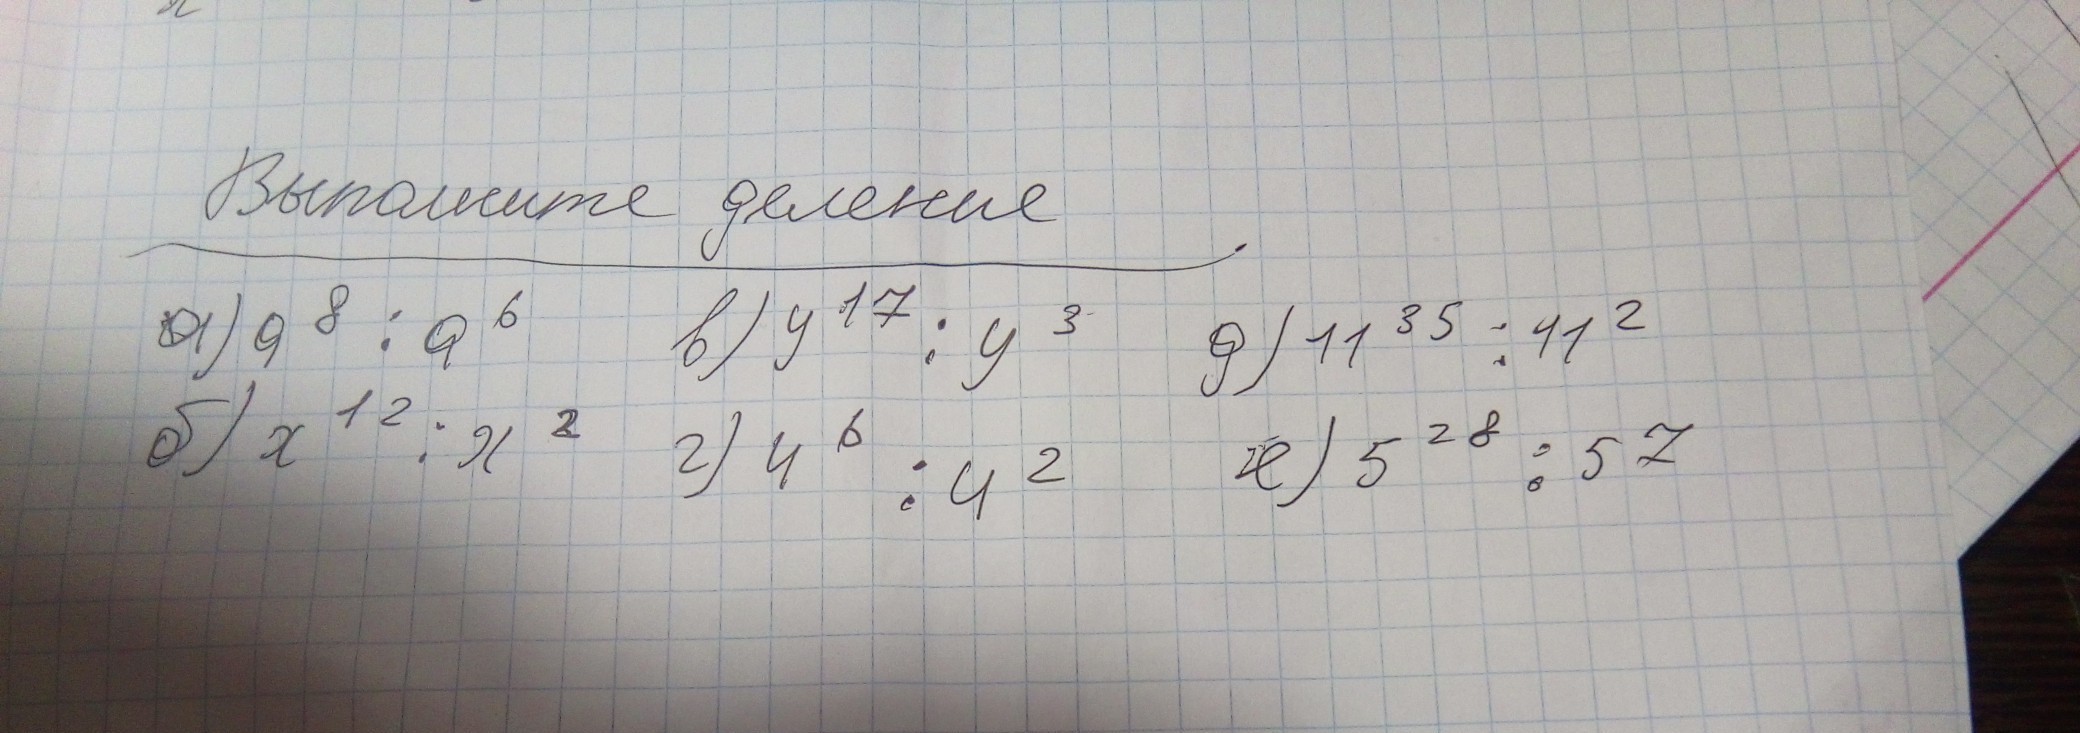 Выполните деление
а) a⁸ : a⁶ в) y¹⁷ : y³ д) 11³⁵ : 11²
б) x¹² : x² г) 4⁶ : 4² е) 5²⁸ : 5⁷